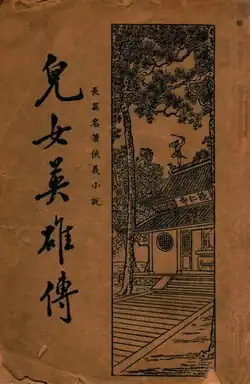 兒女英雄傳
長篇名著俠義小說
能仁寺